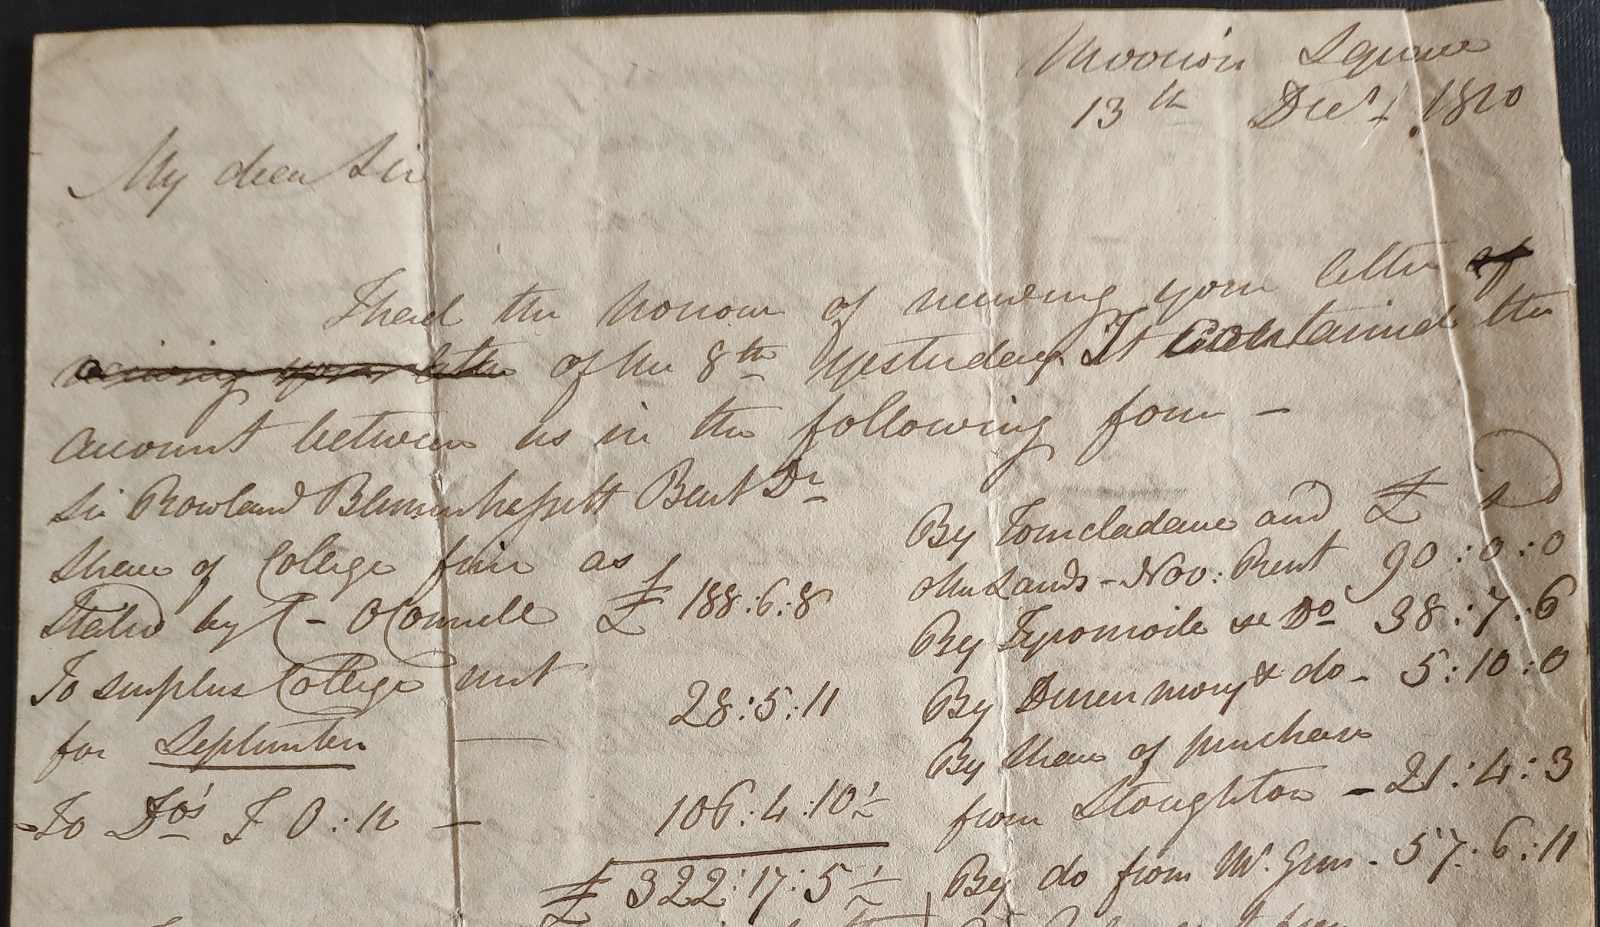 Merrion Square
13th Decr 1810
My dear Sir
I had the honour of receiving your letter of
receiving your letter of the 8th yesterday It contained the
account between us in the following form -
Sir Rowland Blennerhassett Bart Dr
Share of College fine as
Stated by - OConnell £ 188:6:8
To surplus College rent
for September 28:5:11
To Do's 106:4:10½
£ 322:17:5½
£ s d
By and
other Lands - Nov: Rent 90:0:0
By Do 38:7:6
By do - 5:10:0
By Share of purchase
from Stoughton - 21:4:3
By do from Mr. - 57:6:11